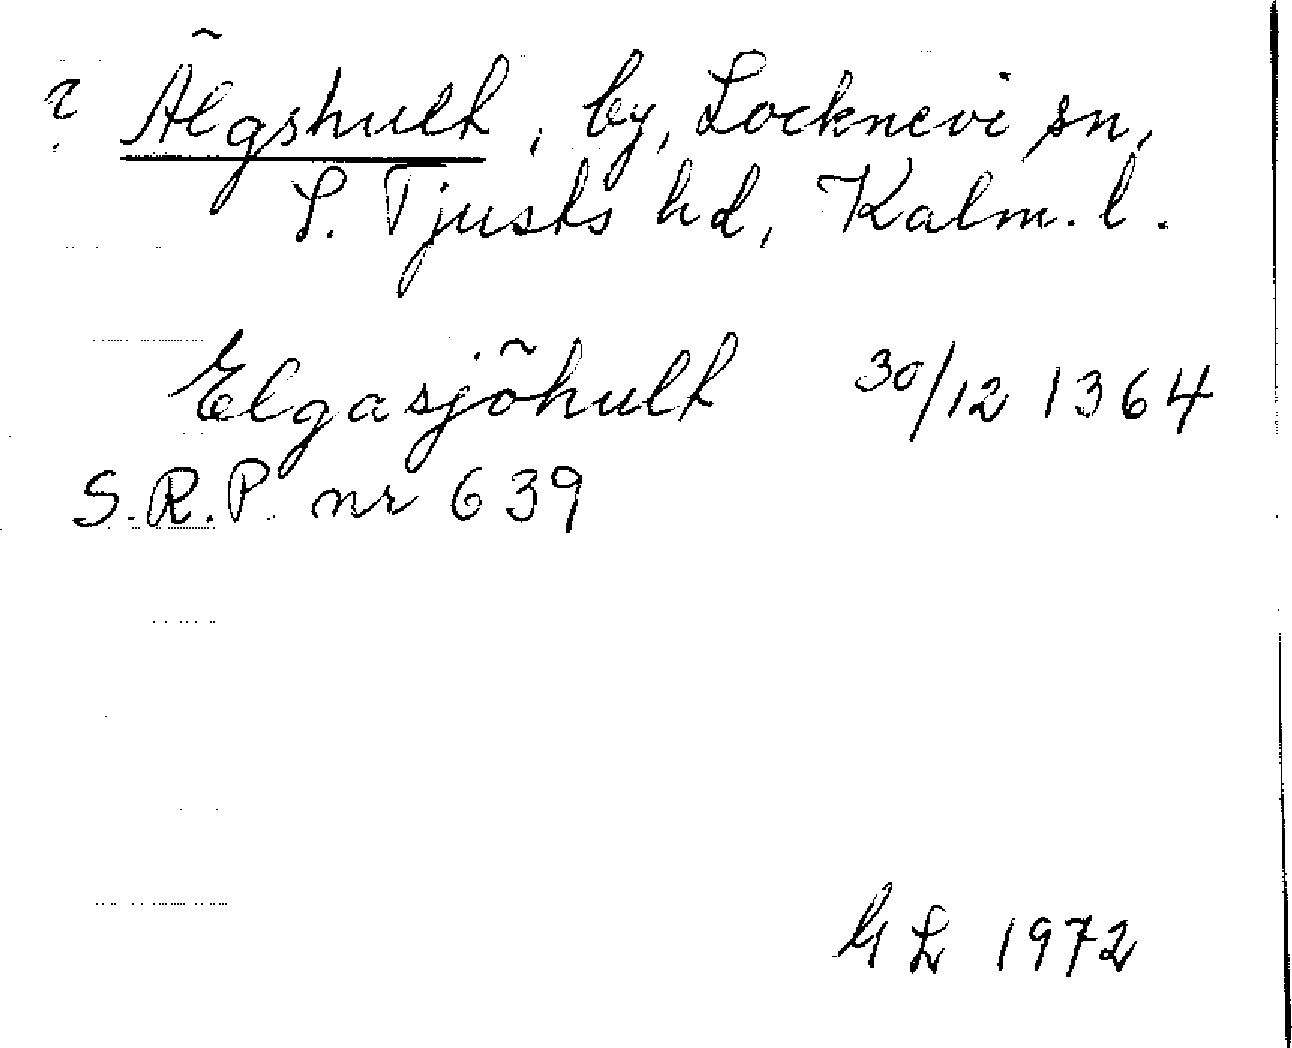 ? Älgshult, by, Locknevi sn,
S. Tjusts hd, Kalm. l.
Elgasjöhult 30/12 1364
S.R.P. nr 639
GL 1972